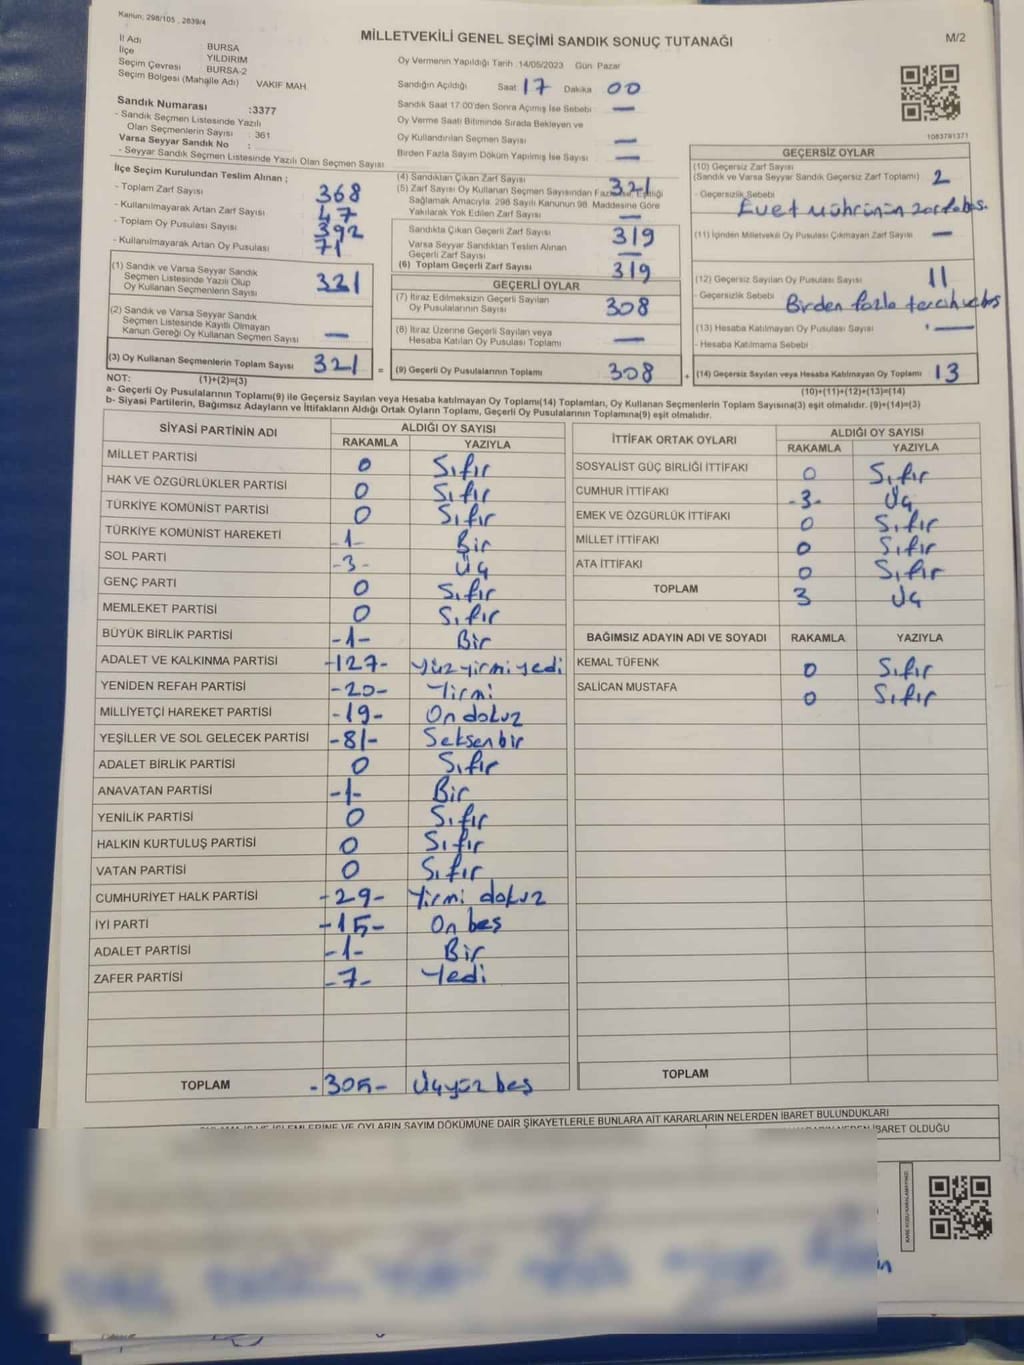 Kanun; 298/105 , 2839/4
MİLLETVEKİLİ GENEL SEÇİMİ SANDIK SONUÇ TUTANAĞI
M/2
İl Adı BURSA
İlçe YILDIRIM
Seçim Çevresi BURSA-2
Seçim Bölgesi (Mahalle Adı) VAKIF MAH.
Sandık Numarası :3377
- Sandık Seçmen Listesinde Yazılı
Olan Seçmenlerin Sayısı : 361
Varsa Seyyar Sandık No :
- Seyyar Sandık Seçmen Listesinde Yazılı Olan Seçmen Sayısı
Oy Vermenin Yapıldığı Tarih :14/05/2023 Gün Pazar
Sandığın Açıldığı Saat 17 Dakika 00
Sandık Saat 17:00'den Sonra Açılmış İse Sebebi —
Oy Verme Saati Bitiminde Sırada Bekleyen ve
Oy Kullandırılan Seçmen Sayısı —
Birden Fazla Sayım Döküm Yapılmış İse Sayısı —
1083791371
İlçe Seçim Kurulundan Teslim Alınan ;
- Toplam Zarf Sayısı 368
- Kullanılmayarak Artan Zarf Sayısı 47
- Toplam Oy Pusulası Sayısı 392
- Kullanılmayarak Artan Oy Pusulası 71
(1) Sandık ve Varsa Seyyar Sandık
Seçmen Listesinde Yazılı Olup
Oy Kullanan Seçmenlerin Sayısı 321
(2) Sandık ve Varsa Seyyar Sandık
Seçmen Listesinde Kayıtlı Olmayan
Kanun Gereği Oy Kullanan Seçmen Sayısı —
(3) Oy Kullanan Seçmenlerin Toplam Sayısı 321 =
(4) Sandıktan Çıkan Zarf Sayısı 321
(5) Zarf Sayısı Oy Kullanan Seçmen Sayısından
Sağlamak Amacıyla 298 Sayılı Kanunun 98. Maddesine Göre
Yakılarak Yok Edilen Zarf Sayısı —
Sandıkta Çıkan Geçerli Zarf Sayısı 319
Varsa Seyyar Sandıktan Teslim Alınan
Geçerli Zarf Sayısı —
(6) Toplam Geçerli Zarf Sayısı 319
GEÇERLİ OYLAR
(7) İtiraz Edilmeksizin Geçerli Sayılan
Oy Pusulalarının Sayısı 308
(8) İtiraz Üzerine Geçerli Sayılan veya
Hesaba Katılan Oy Pusulası Toplamı —
(9) Geçerli Oy Pusulalarının Toplamı 308 +
GEÇERSİZ OYLAR
(10) Geçersiz Zarf Sayısı
(Sandık ve Varsa Seyyar Sandık Geçersiz Zarf Toplamı) 2
- Geçersizlik Sebebi
Evet Mührünün
(11) İçinden Milletvekili Oy Pusulası Çıkmayan Zarf Sayısı —
(12) Geçersiz Sayılan Oy Pusulası Sayısı 11
- Geçersizlik Sebebi Birden fazla tercih
(13) Hesaba Katılmayan Oy Pusulası Sayısı —
- Hesaba Katılmama Sebebi
(14) Geçersiz Sayılan veya Hesaba Katılmayan Oy Toplamı 13
NOT: (1)+(2)=(3) (10)+(11)+(12)+(13)=(14)
a- Geçerli Oy Pusulalarının Toplamı(9) ile Geçersiz Sayılan veya Hesaba katılmayan Oy Toplamı(14) Toplamları, Oy Kullanan Seçmenlerin Toplam Sayısına(3) eşit olmalıdır. (9)+(14)=(3)
b- Siyasi Partilerin, Bağımsız Adayların ve İttifakların Aldığı Ortak Oyların Toplamı, Geçerli Oy Pusulalarının Toplamına(9) eşit olmalıdır.
SİYASİ PARTİNİN ADI ALDIĞI OY SAYISI
RAKAMLA YAZIYLA
MİLLET PARTİSİ 0 Sıfır
HAK VE ÖZGÜRLÜKLER PARTİSİ 0 Sıfır
TÜRKİYE KOMÜNİST PARTİSİ 0 Sıfır
TÜRKİYE KOMÜNİST HAREKETİ -1- Bir
SOL PARTİ -3- Üç
GENÇ PARTİ 0 Sıfır
MEMLEKET PARTİSİ 0 Sıfır
BÜYÜK BİRLİK PARTİSİ -1- Bir
ADALET VE KALKINMA PARTİSİ -127- Yüzyirmiyedi
YENİDEN REFAH PARTİSİ -20- Yirmi
MİLLİYETÇİ HAREKET PARTİSİ -19- On dokuz
YEŞİLLER VE SOL GELECEK PARTİSİ -81- Seksenbir
ADALET BİRLİK PARTİSİ 0 Sıfır
ANAVATAN PARTİSİ -1- Bir
YENİLİK PARTİSİ 0 Sıfır
HALKIN KURTULUŞ PARTİSİ 0 Sıfır
VATAN PARTİSİ 0 Sıfır
CUMHURİYET HALK PARTİSİ -29- Yirmi dokuz
İYİ PARTİ -15- On beş
ADALET PARTİSİ -1- Bir
ZAFER PARTİSİ -7- Yedi
TOPLAM -305- Üçyüz beş
İTTİFAK ORTAK OYLARI ALDIĞI OY SAYISI
RAKAMLA YAZIYLA
SOSYALİST GÜÇ BİRLİĞİ İTTİFAKI 0 Sıfır
CUMHUR İTTİFAKI -3- Üç
EMEK VE ÖZGÜRLÜK İTTİFAKI 0 Sıfır
MİLLET İTTİFAKI 0 Sıfır
ATA İTTİFAKI 0 Sıfır
TOPLAM 3 Üç
BAĞIMSIZ ADAYIN ADI VE SOYADI RAKAMLA YAZIYLA
KEMAL TÜFENK 0 Sıfır
SALİCAN MUSTAFA 0 Sıfır
TOPLAM
VE OYLARIN SAYIM DÖKÜMÜNE DAİR ŞİKAYETLERLE BUNLARA AİT KARARLARIN NELERDEN İBARET BULUNDUKLARI
İBARET OLDUĞU